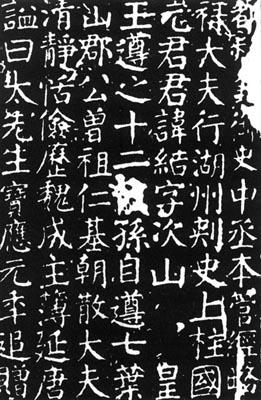 都御史中丞本管經略
祿大夫行湖州刺史上柱國
元君君諱結字次山 皇
王遵之十二孫自遵七葉
山郡公曾祖仁基朝散大夫
清靜恬儉歷魏成主簿延唐
謚曰太先生寶應元年追贈